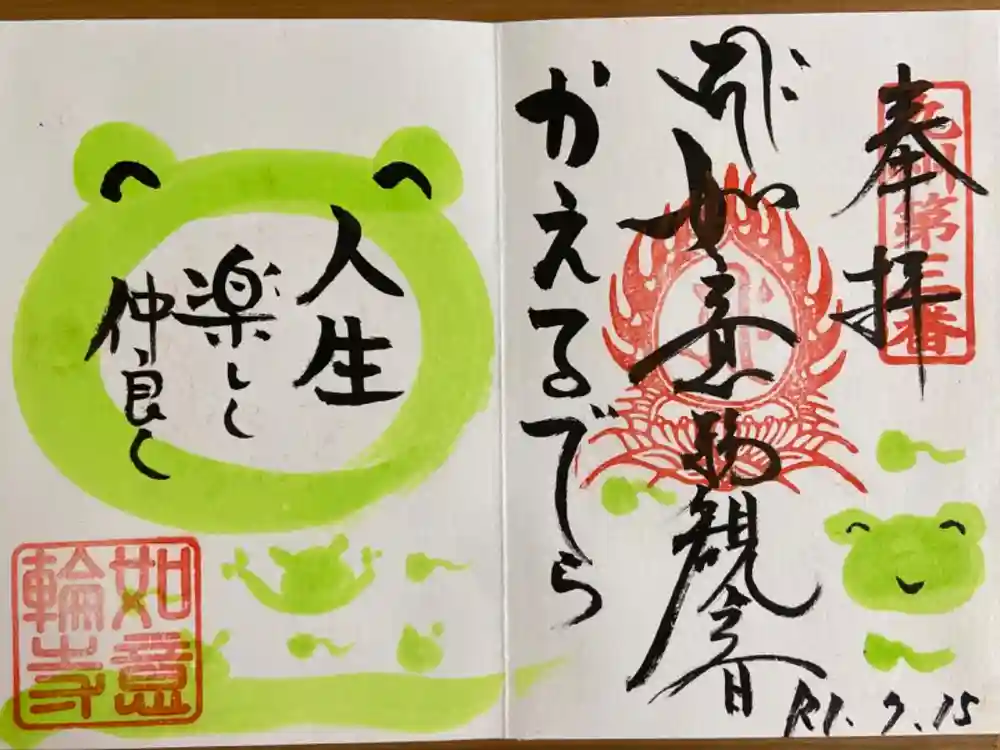 奉拝
九州第三番
如意輪観音
かえるでら
R1.7.15
人生
楽しく
仲良く
如意
輪寺